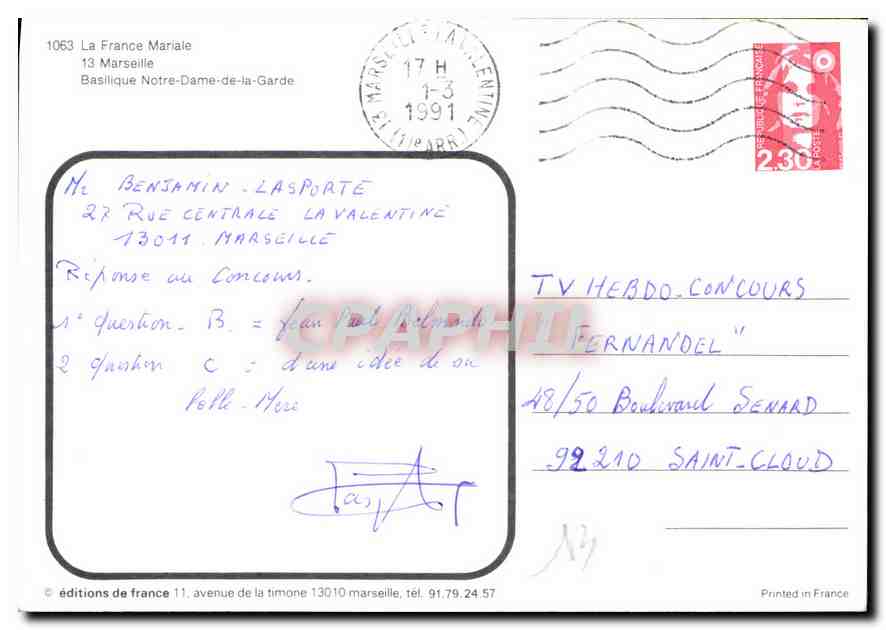 1063 La France Mariale
13 Marseille
Basilique Notre-Dame-de-la-Garde
13 MARSEILLE LA VALENTINE
17 H
1-3
1991
(11e ARR)
REPUBLIQUE FRANÇAISE
2,30
LA POSTE
Mr BENJAMIN LASPORTE
27 RUE CENTRALE LA VALENTINE
13011. MARSEILLE
Réponse au Concours.
1° Question - B. = Jean Paul Belmondo
2 Question C = d'une idée de sa
Belle-Mère
CPAPHIL
TV HEBDO-CONCOURS
"FERNANDEL"
48/50 Boulevard SENARD
92210 SAINT-CLOUD
13
© éditions de france 11, avenue de la timone 13010 marseille, tél. 91.79.24.57
Printed in France